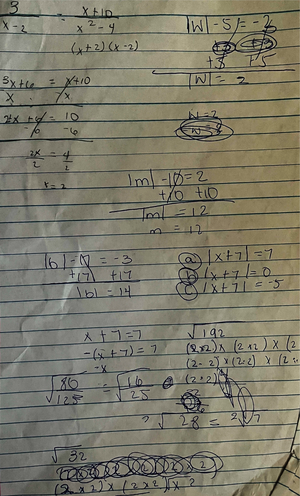 3/x-2 = x+10/x²-4
(x+2)(x-2)
3x+6 = x+10
2x+6 = 10
-6 -6
2x/2 = 4/2
x=2
|w| -5 = -2
+5 +5
|w| = 2
w=2
|m| -10 = 2
+10 +10
|m| = 12
m = 12
|b| -17 = -3
+17 +17
|b| = 14
a) |x+7| = 7
b) |x+7| = 0
c) |x+7| = -5
x+7=7
-(x+7)=7
-x
√80/125 = √16/25
√192
(2×2)×(2×2)×(2
(2·2)×(2·2)×(2
(2×2)
√28 = 2√7
√32
(2×2)×(2×2)×2